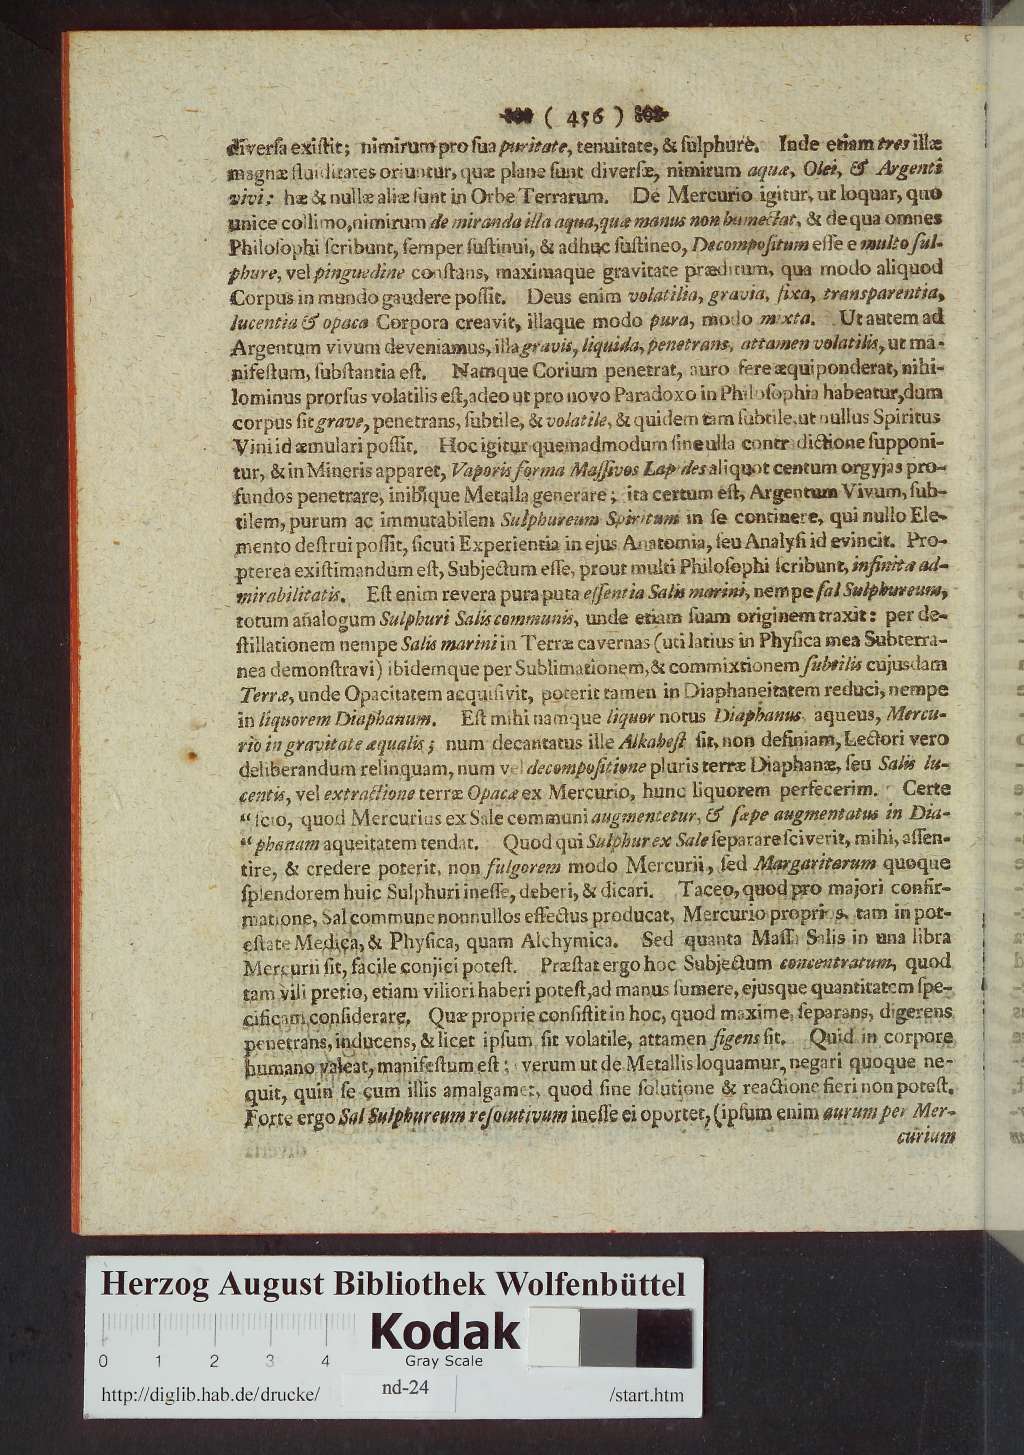 ( 456 )
diverſa exiſtit; nimirum pro ſua puritate, tenuitate, & ſulphure. Inde etiam tres illæ
magnæ fluiditates oriuntur, quæ plane ſunt diverſæ, nimirum aquæ, Olei, & Argenti
vivi; hæ & nullæ aliæ ſunt in Orbe Terrarum. De Mercurio igitur, ut loquar, quo
unice collimo, nimirum de miranda illa aqua, quæ manus non humectat, & de qua omnes
Philoſophi ſcribunt, ſemper ſuſtinui, & adhuc ſuſtineo, Decompoſitum eſſe e multo ſul-
phure, vel pinguedine conſtans, maximaque gravitate præditum, qua modo aliquod
Corpus in mundo gaudere poſſit. Deus enim volatilia, gravia, fixa, transparentia,
lucentia & opaca Corpora creavit, illaque modo pura, modo mixta. Ut autem ad
Argentum vivum deveniamus, illa gravis, liquida, penetrans, attamen volatilis, ut ma-
nifeſtum, ſubſtantia eſt. Namque Corium penetrat, auro fere æquiponderat, nihi-
lominus prorſus volatilis eſt, adeo ut pro novo Paradoxo in Philoſophia habeatur, dum
corpus ſit grave, penetrans, ſubtile, & volatile, & quidem tam ſubtile, ut nullus Spiritus
Vini id æmulari poſſit. Hoc igitur quemadmodum ſine ulla contradictione ſupponi-
tur, & in Mineris apparet, Vaporis forma Maſſivos Lapides aliquot centum orgyjas pro-
fundos penetrare, inibique Metalla generare; ita certum eſt, Argentum Vivum, ſub-
tilem, purum ac immutabilem Sulphureum Spiritum in ſe continere, qui nullo Ele-
mento deſtrui poſſit, ſicuti Experientia in ejus Anatomia, ſeu Analyſi id evincit. Pro-
pterea exiſtimandum eſt, Subjectum eſſe, prout multi Philoſophi ſcribunt, infinitæ ad-
mirabilitatis. Eſt enim revera pura puta eſſentia Salis marini, nempe ſal Sulphureum,
totum analogum Sulphuri Salis communis, unde etiam ſuam originem traxit: per de-
ſtillationem nempe Salis marini in Terræ cavernas (uti latius in Phyſica mea Subterra-
nea demonſtravi) ibidemque per Sublimationem, & commixtionem ſubtilis cujusdam
Terræ, unde Opacitatem acquiſivit, poterit tamen in Diaphaneitatem reduci, nempe
in liquorem Diaphanum. Eſt mihi namque liquor notus Diaphanus, aqueus, Mercu-
rio in gravitate æqualis; num decantatus ille Alkaheſt ſit, non definiam, Lectori vero
deliberandum relinquam, num vel decompoſitione pluris terræ Diaphanæ, ſeu Salis lu-
centis, vel extractione terræ Opacæ ex Mercurio, hunc liquorem perfecerim. Certe
“ ſcio, quod Mercurius ex Sale communi augmentetur, & ſæpe augmentatus in Dia-
“ phanam aqueitatem tendat. Quod qui Sulphur ex Sale ſeparare ſciverit, mihi, aſſen-
tire, & credere poterit, non fulgorem modo Mercurii, ſed Margaritarum quoque
ſplendorem huic Sulphuri ineſſe, deberi, & dicari. Taceo, quod pro majori confir-
matione, Sal commune nonnullos effectus producat, Mercurio proprios, tam in pot-
eſtate Medica, & Phyſica, quam Alchymica. Sed quanta Maſſa Salis in una libra
Mercurii ſit, facile conjici poteſt. Præſtat ergo hoc Subjectum concentratum, quod
tam vili pretio, etiam viliori haberi poteſt, ad manus ſumere, ejusque quantitatem ſpe-
cificam conſiderare. Quæ proprie conſiſtit in hoc, quod maxime, ſeparans, digerens
penetrans, inducens, & licet ipſum ſit volatile, attamen figens ſit. Quid in corpore
humano valeat, manifeſtum eſt; verum ut de Metallis loquamur, negari quoque ne-
quit, quin ſe cum illis amalgamet, quod ſine ſolutione & reactione fieri non poteſt.
Forte ergo Sal Sulphureum reſolutivum ineſſe ei oportet, (ipſum enim aurum per Mer-
curium
Herzog August Bibliothek Wolfenbüttel
Kodak
Gray Scale
0 1 2 3 4
http://diglib.hab.de/drucke/ nd-24 /start.htm